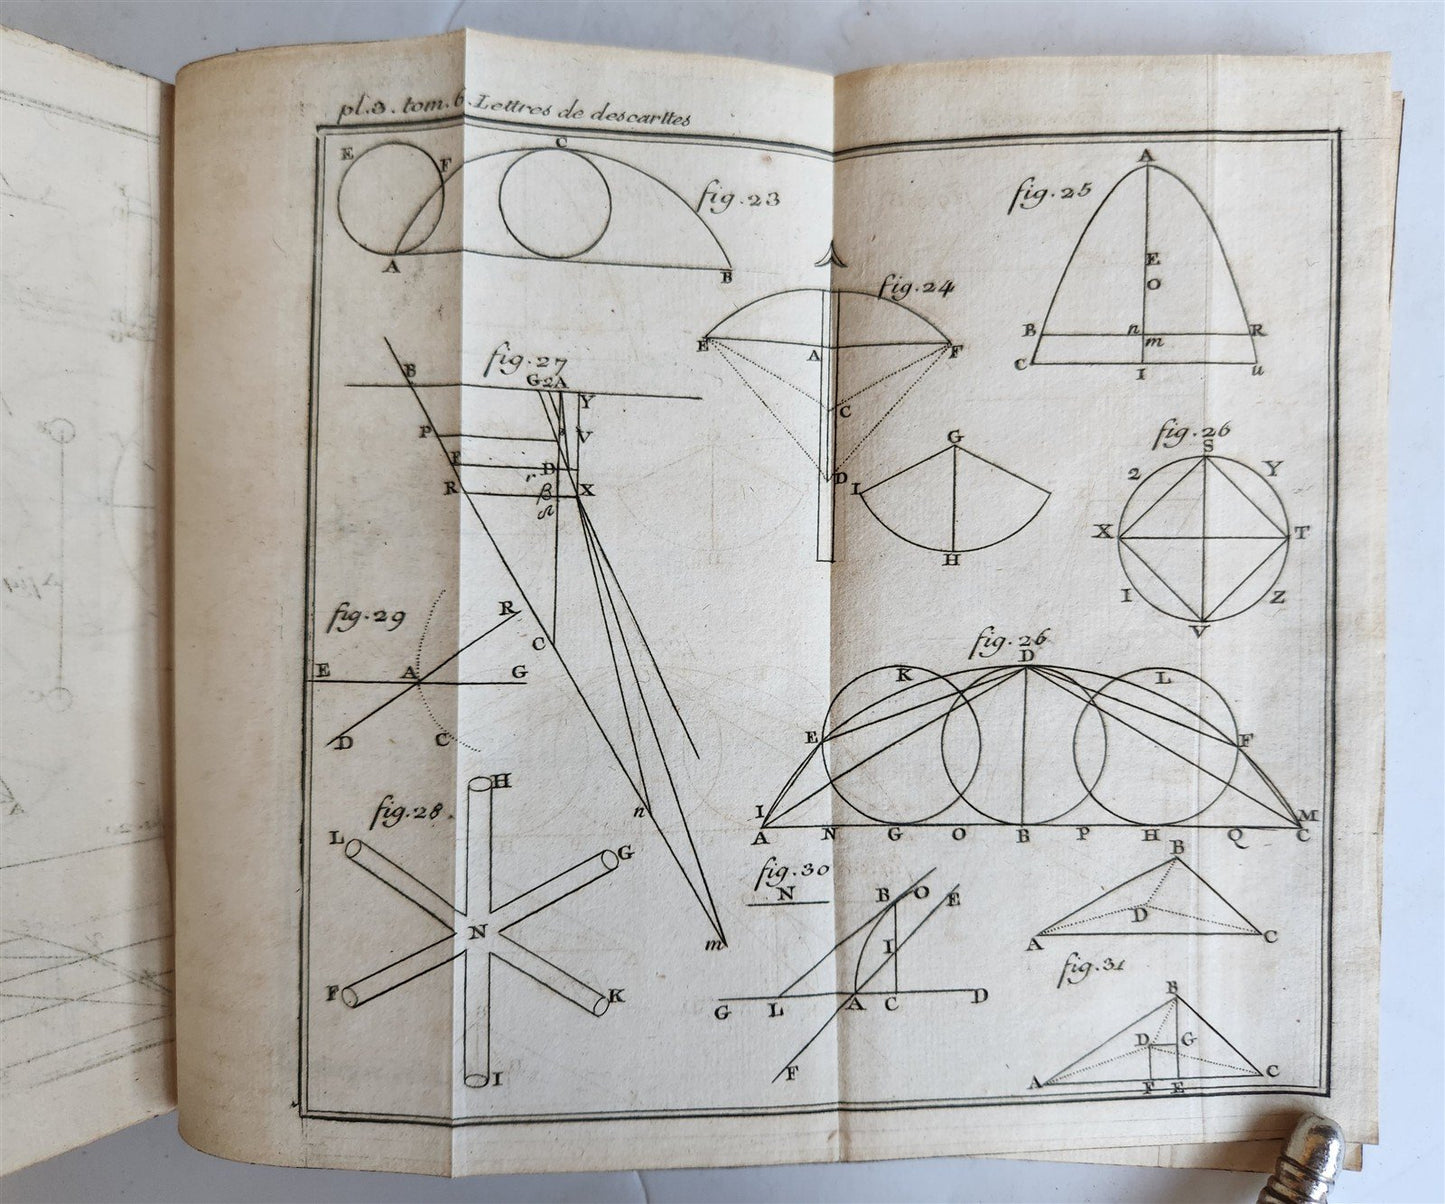 pl.3. tom. 6. Lettres de descarttes
E F C
fig. 23
A B
fig. 24
E A F
C
D
G
I
H
fig. 25
A
E
O
B n R
m
C I u
fig. 26
S
2 Y
X T
I Z
V
fig. 27
B G 2 A
Y
P V
F D
r
R β X
C
n
m
fig. 29
R
E A G
D C
fig. 26
D
K L
E F
I M
A N G O B P H Q C
fig. 28.
H
L G
N
F K
I
fig. 30
N
B O E
I
G L A C D
F
B
D
A C
fig. 31
B
D G
A F E C